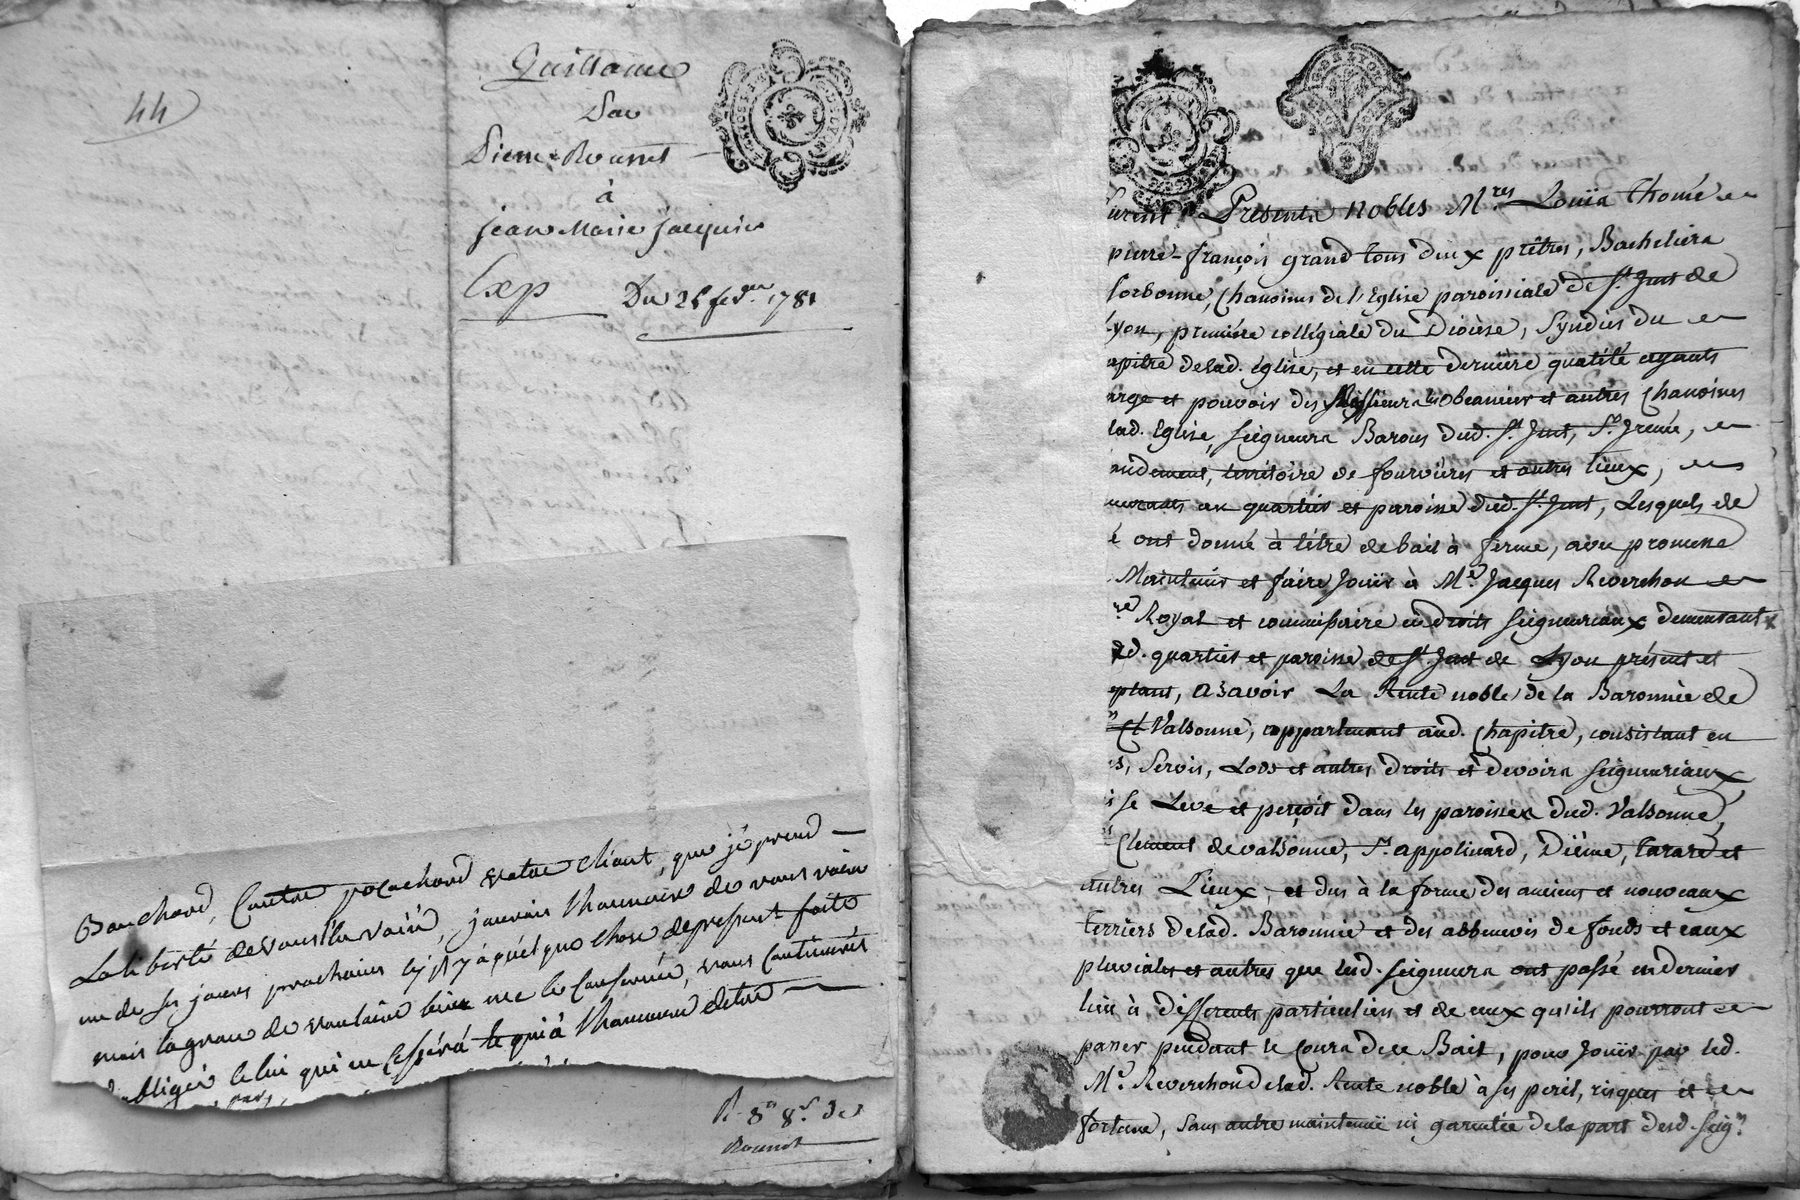 44
Quittance
Par
Pierre Rousset
à
Jean Marie Jacquin
Exp
Du 26 fev.er 1781
Bouchard, Contre votre Cliant, que jé prend
La liberté de vous l'en voiié, jaurais l'honneur de vous voire
un de ses jours prochains s'il y à quelque chose de pressant faite
mois la grace de vouloire bien me le Conservé, vous Continuerés
obliger celui qui ne Cessera le qui à l'honneur detre
R 8s 8s 3d
Rousset
furent Presents nobles Mres Louis thomé
pierre-françois grand tous deux prêtres, Bacheliers
sorbonne, Chanoines de l'Eglise paroissiale de St Just de
Lyon, première collégiale du Diocèse, Syndics du
apitre de lad. église, et en cette dernière qualité ayants
arge et pouvoir des Messieurs les Obeanciers et autres Chanoines
lad. Eglise, seigneurs Barons dud. St Just, St Irenée,
andement, territoire de fourvieres et autres lieux,
meurants au quartier et paroisse dud. St Just, Lesquels de
é ont donné à titre de bail à ferme, avec promesse
Maintenir et faire Jouir à Me Jacques Reverchon
re Royal et commissaire en droits seigneuriaux demeurant
ud. quartier et paroisse de St Just de Lyon présent et
eptant, a savoir La Rente noble de la Baronnie de
St Cl Valsonne, appartenant aud. Chapitre, consistant en
s, Servis, Lods et autres droits et devoirs seigneuriaux
i se Leve et perçoit dans les paroisses dud. Valsonne,
Clement de valsonne, St appolinard, Dième, tarare et
autres Lieux, et dus à la forme des anciens et nouveaux
terriers de lad. Baronnie et des abbenevis de fonds et eaux
pluviales et autres que lesd. seigneurs ont passé en dernier
lieu à differents particuliers et de ceux qu'ils pourront
passer pendant le cours de ce Bail, pour Jouir par led.
Me Reverchon de lad. Rente noble à ses peril, risques et
fortune, Sans autre maintenüe ni garentie de la part desd. seigrs